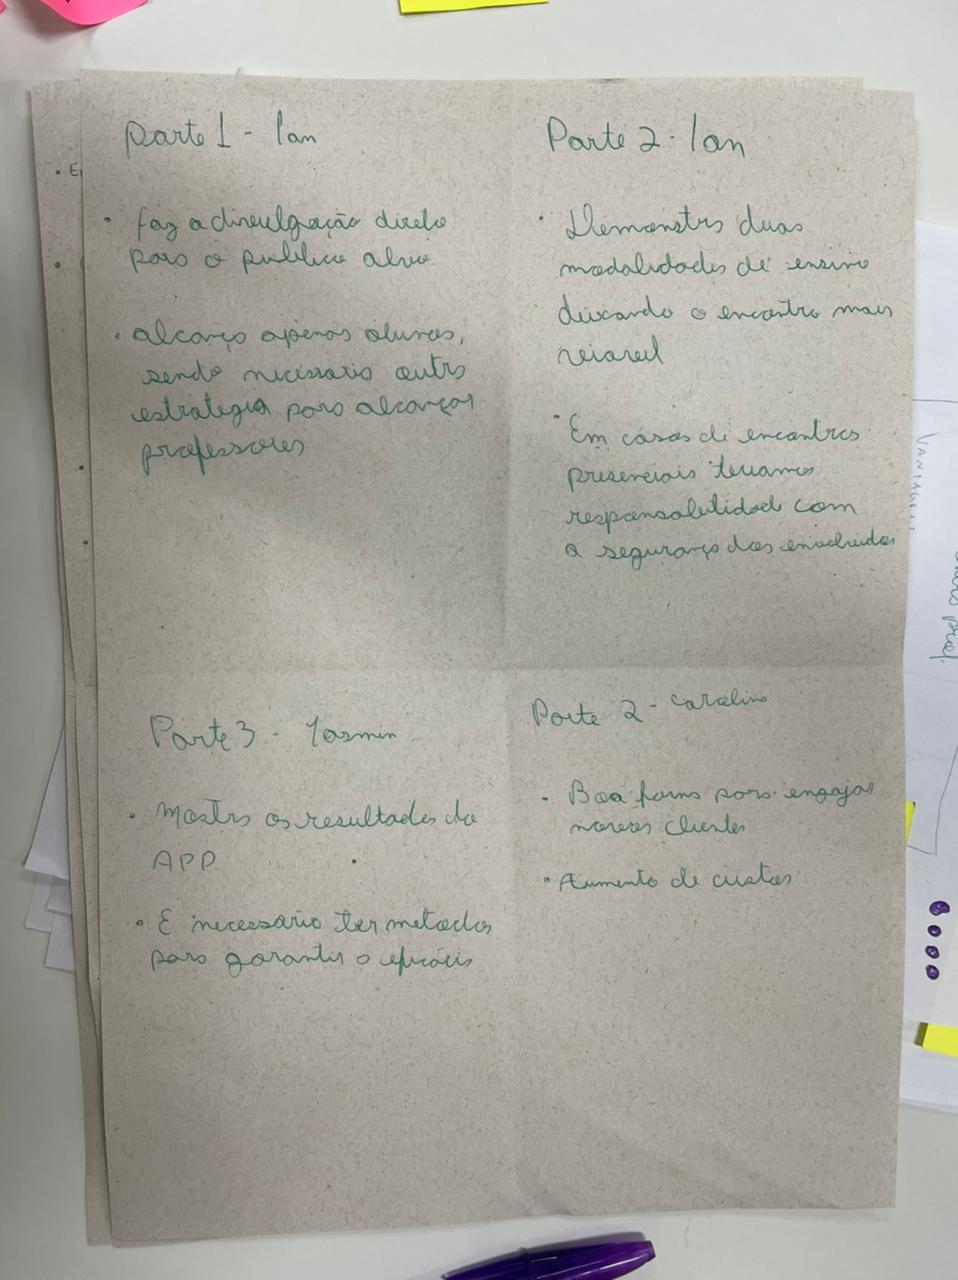 Parte 1 - Ian
• Faz a divulgação direto
para o publico alvo
• alcança apenas alunos,
sendo necessario outra
estrategia para alcançar
professores
Parte 2 - Ian
• Demonstra duas
modalidades de ensino
deixando o encontro mais
• Em casos de encontros
presenciais teriamos
responsabilidade com
a segurança dos envolvidos
Parte 3 - Iasmin
• Mostra os resultados do
APP
• E necessario ter metodos
para garantir a eficácia
Parte 2 - Carolina
• Boa forma para engajar
novos clientes
• Aumento de custos
VANTAGENS